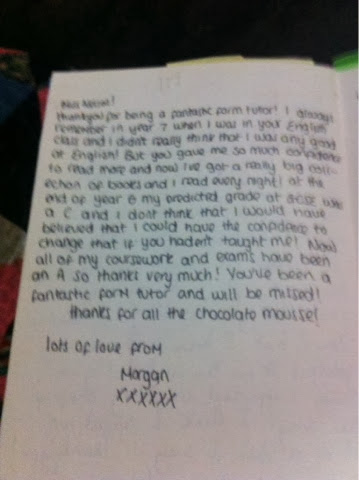 Miss !
thankyou for being a fantastic form tutor! I always
remember in year 7 when I was in your English
class and I didn't really think that I was any good
at English! But you gave me so much confidence
to read more and now I've got a really big coll-
ection of books and I read every night! At the
end of year 6 my predicted grade at GCSE was
a C and I dont think that I would have
believed that I could have the confidence to
change that if you hadent taught me! Now
all of my coursework and exams have been
an A so thanks very much! You've been a
fantastic form tutor and will be missed!
thanks for all the chocolate mousse!
lots of love from
Morgan
xxxxxx